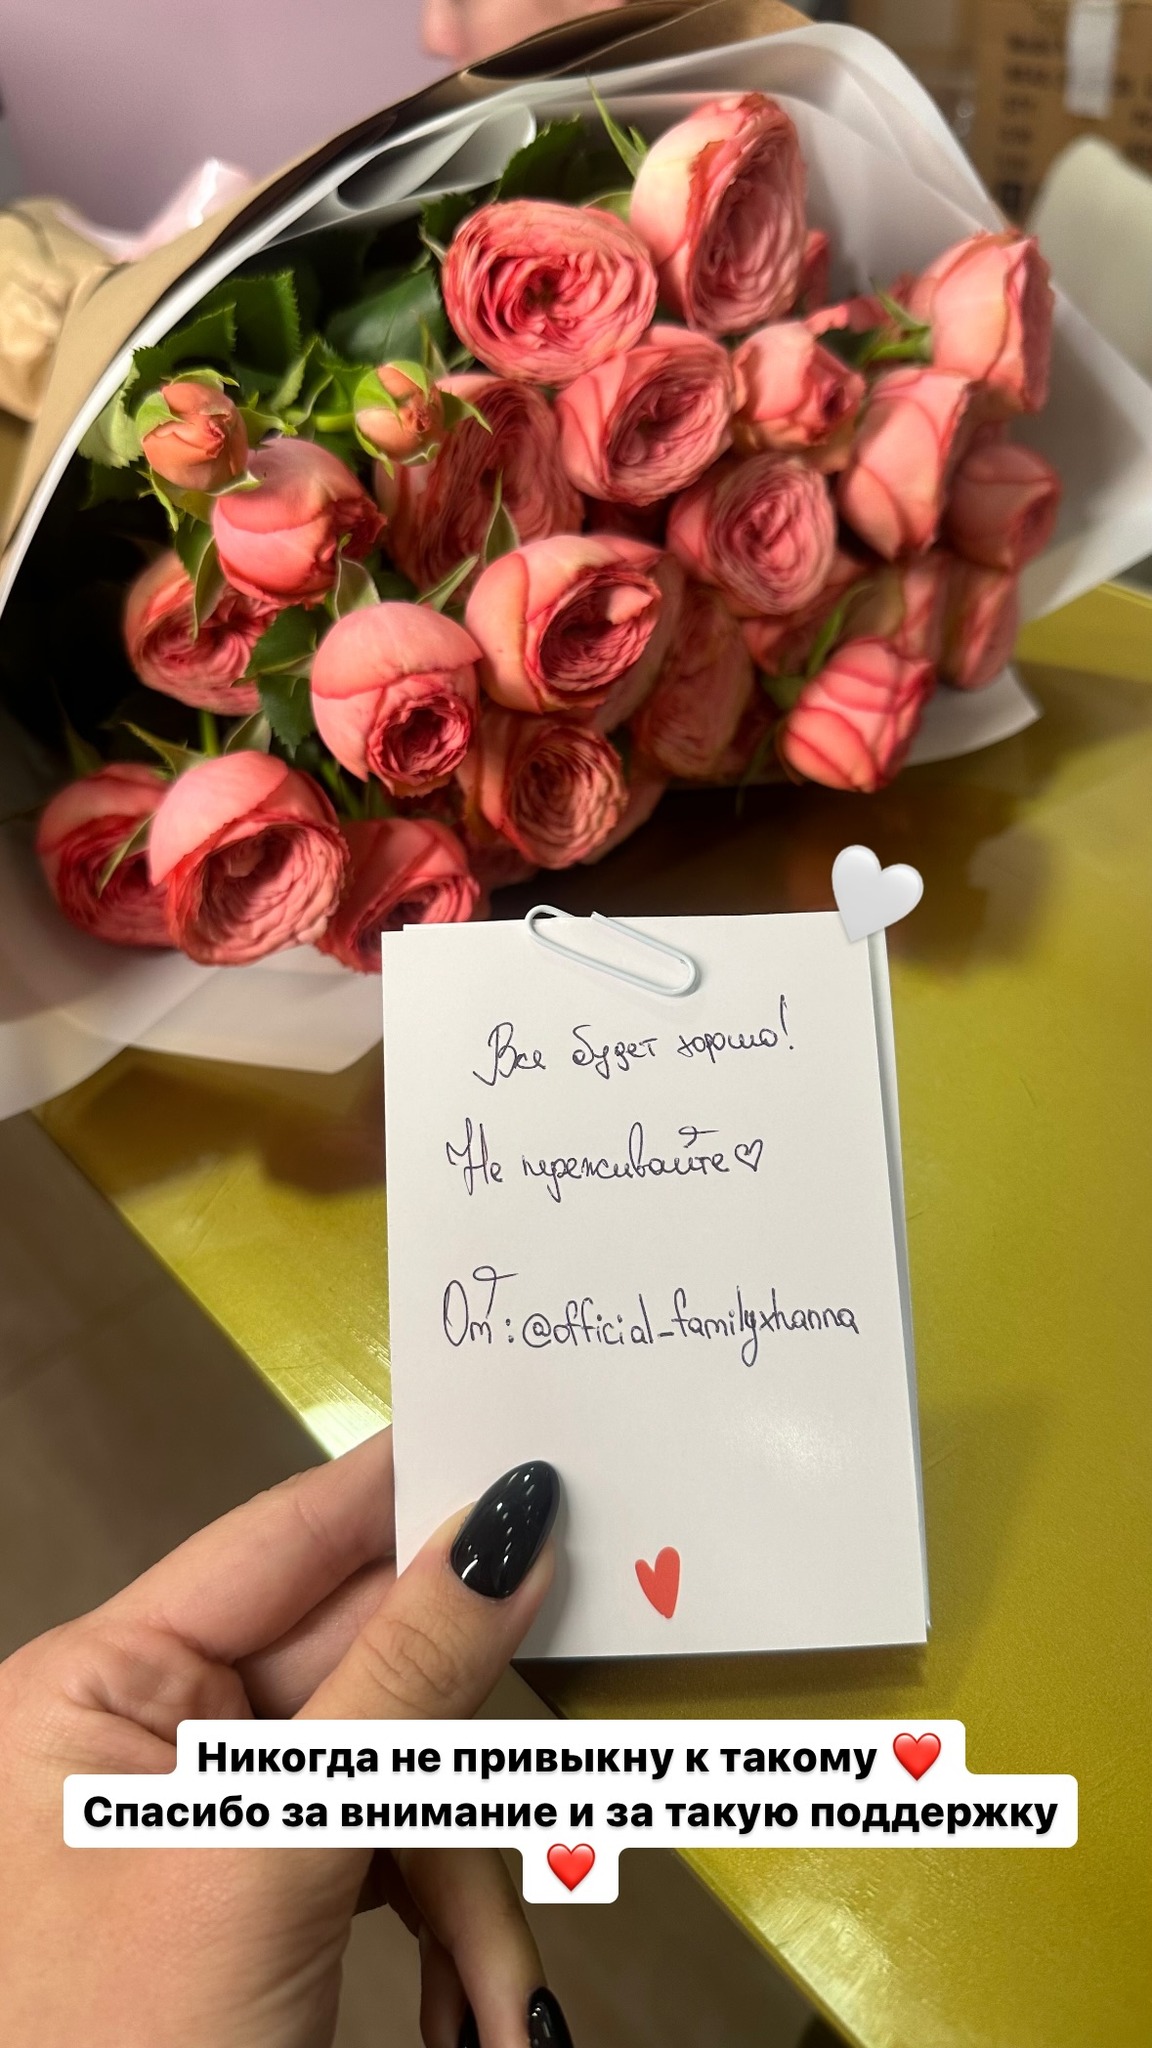 Все будет хорошо!
Не переживайте♡
От: @official_familyxhanna
Никогда не привыкну к такому ❤️
Спасибо за внимание и за такую поддержку
❤️